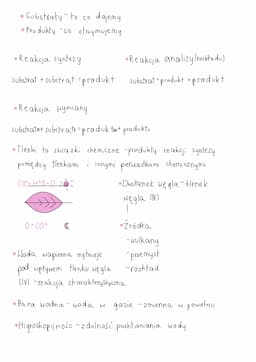 • Substraty - to co dajemy
• Produkty - co otrzymujemy
• Reakcja syntezy
• Reakcja analizy (rozkładu)
substrat + substrat → produkt
substrat → produkt + produkt
• Reakcja wymiany
substrat + substrat → produkt + produkt
• Tlenki to związki chemiczne - produkty reakcji syntezy
pomiędzy tlenkami i innymi pierwiastkami chemicznymi
• Dwutlenek węgla - tlenek
węgla (IV)
• Źródła
- wulkany
- przemysł
- rozkład
• Woda wapienna mętnieje
pod wpływem tlenku węgla
(IV) - reakcja charakterystyczna
• Para wodna - woda w gazie - zmienna w powietrzu
• Higroskopijność - zdolność pochłaniania wody